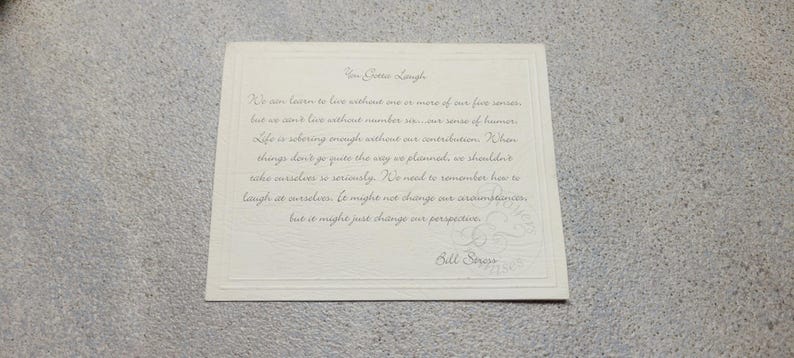 You Gotta Laugh
We can learn to live without one or more of our five senses,
but we can't live without number six...our sense of humor.
Life is sobering enough without our contribution. When
things don't go quite the way we planned, we shouldn't
take ourselves so seriously. We need to remember how to
laugh at ourselves. It might not change our circumstances,
but it might just change our perspective.
Bill Stross